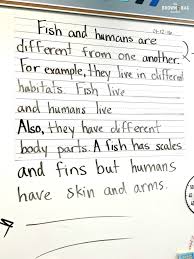 BROWN BAG
Fish and humans are
different from one another.
For example, they live in different
habitats. Fish live
and humans live
Also, they have different
body parts. A fish has scales
and fins but humans
have skin and arms.